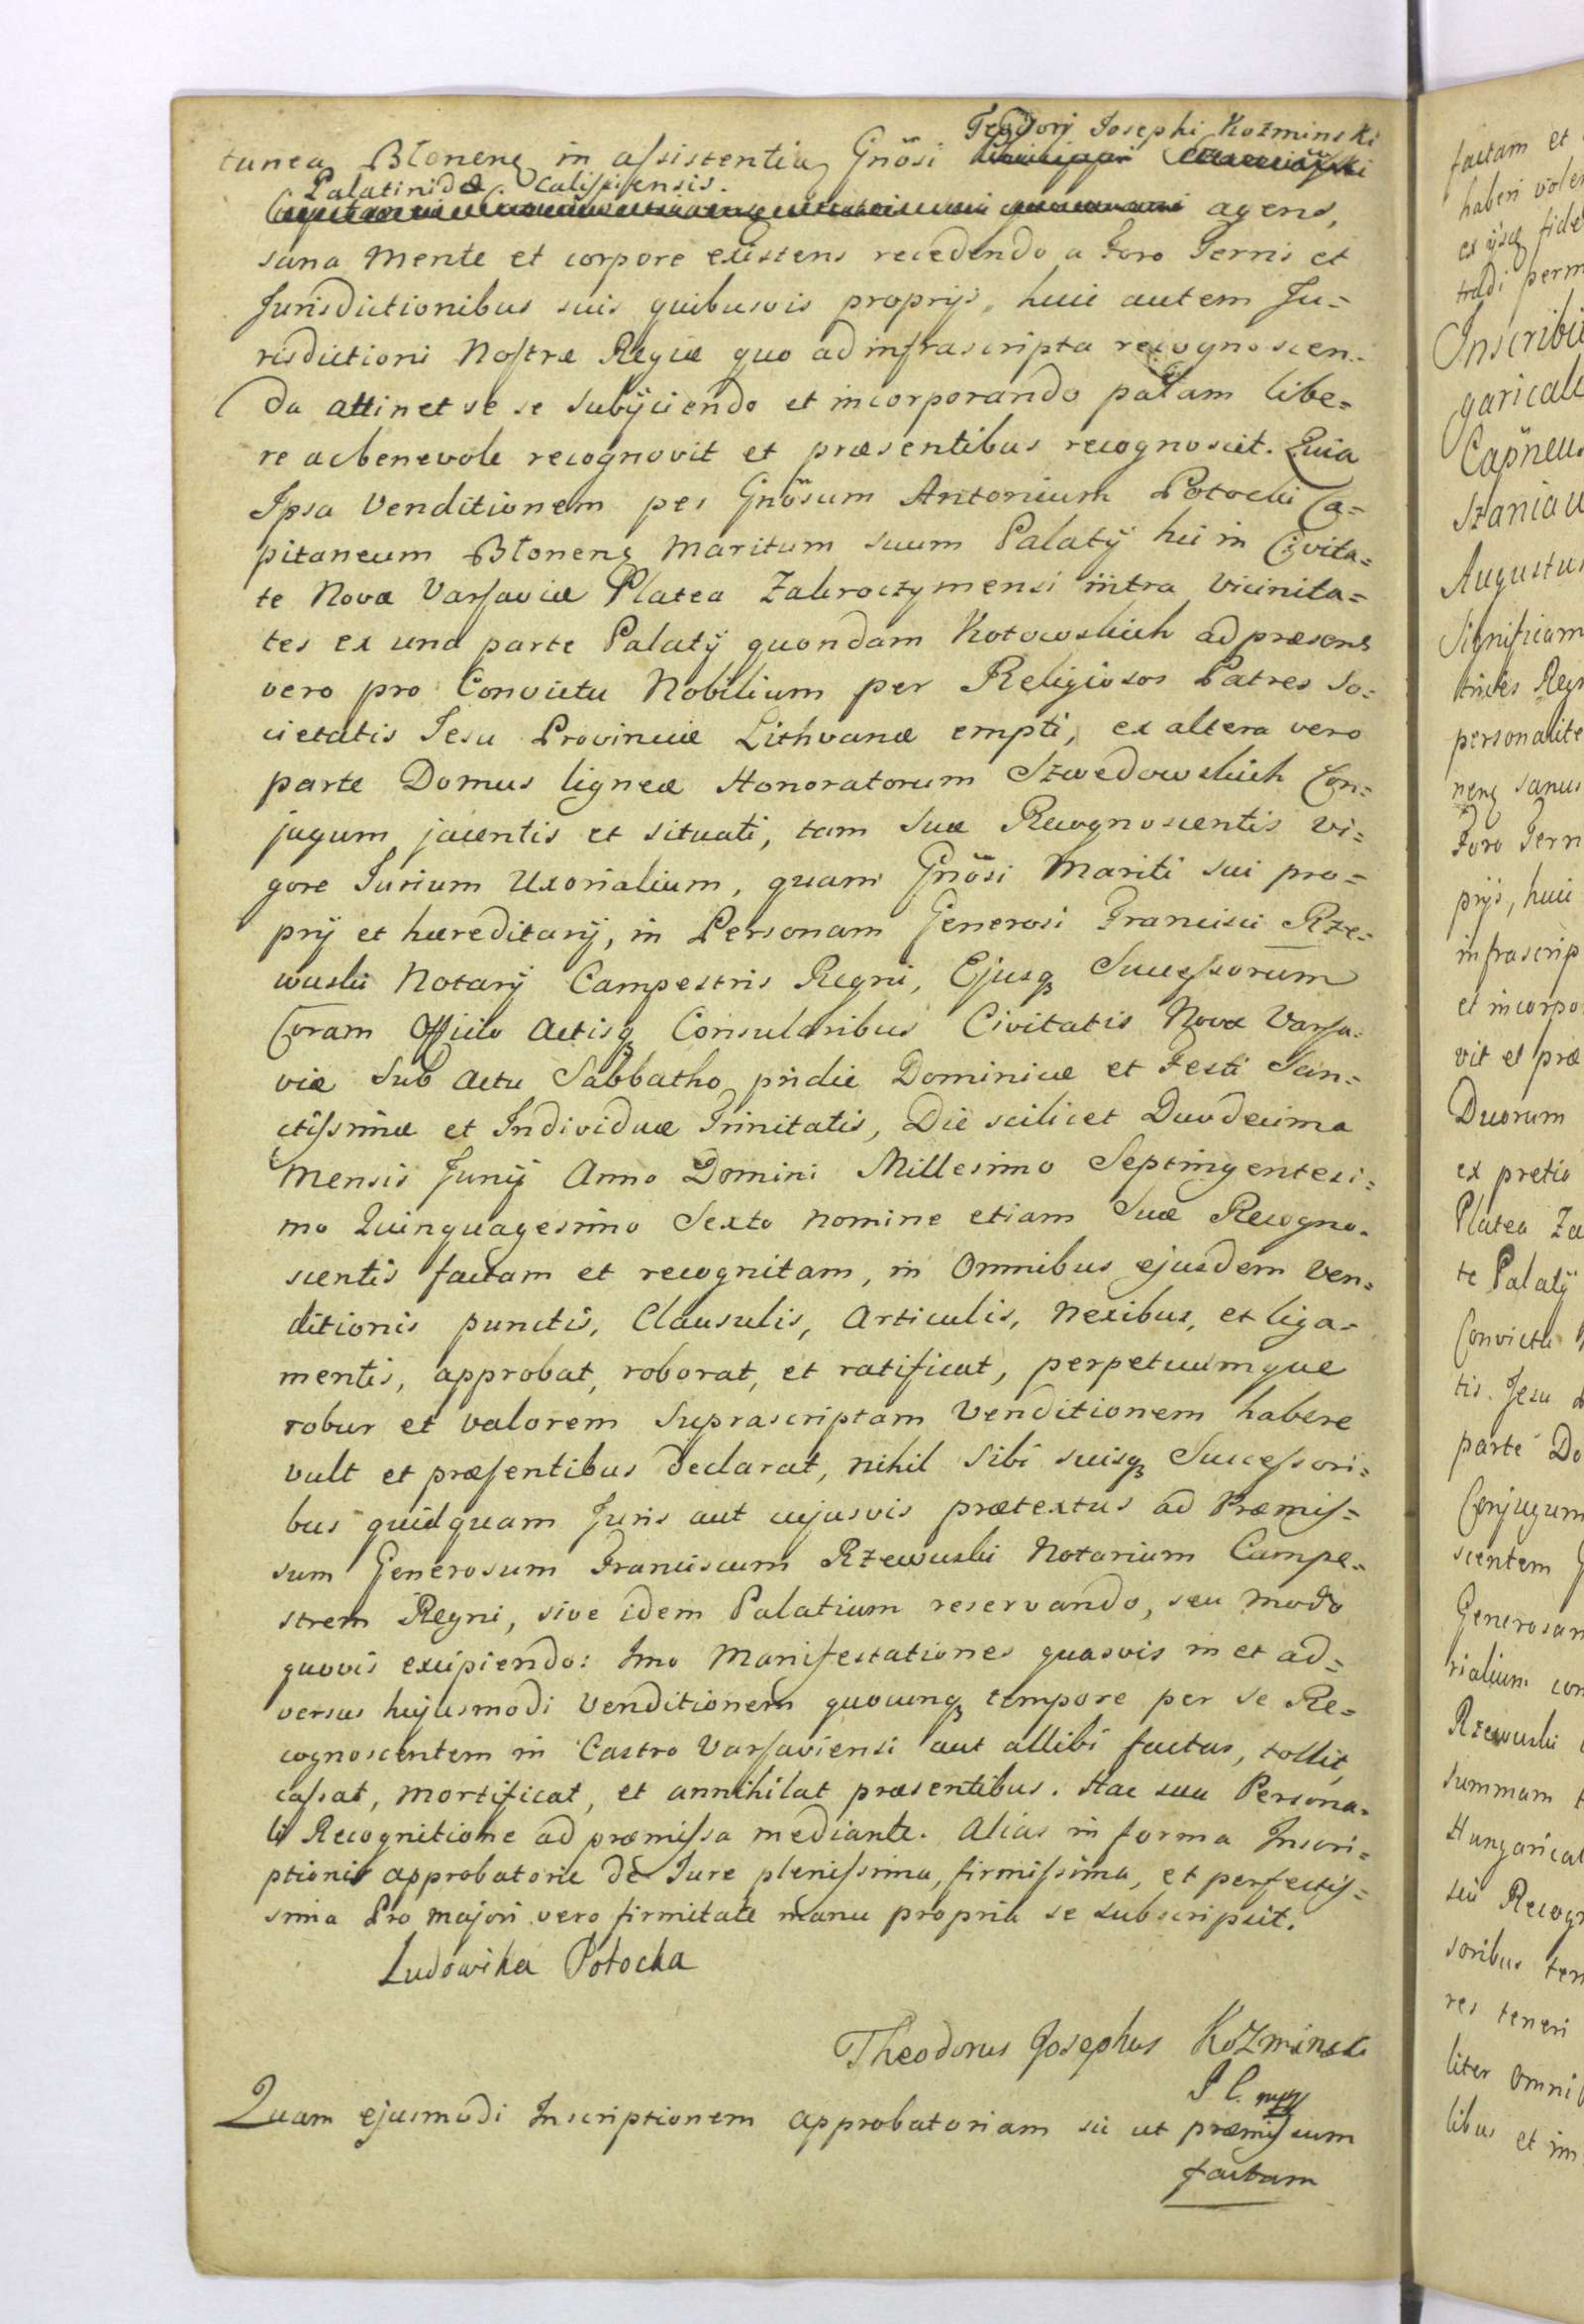 Teodori Josephi Kozminski
tunea Błonenę in aſsistentia Gnösi
Palatinidæ Caliſsiensis.
agens,
sana Mente et corpore existens recedendo a Foro Terris et
Jurisdictionibus suis quibusvis proprijs, huic autem Ju=
risdictioni Noſtræ Regiæ quo ad infrascripta recognoscen=
da attinet se se subijciendo et incorporando palam libe=
re ac benevole recognovit et præsentibus recognoscit. Quia
Ipsa Venditionem per Gnösum Antonium Potocki Ca=
pitaneum Błonenę Maritum suum Palatij hic in Civita=
te Nova Varſaviæ Platea Zakroczymensi intra Vicinita=
tes ex una parte Palatij quondam Kotowskich ad præsens
vero pro Convictu Nobilium per Religiosos Patres So=
cietatis Jesu Provinciæ Lithvanæ empti, ex altera vero
parte Domus ligneæ Honoratorum Szwedowskich Con=
jugum jacentis et situati, tam suæ Recognoscentis vi=
gore Jurium Uxorialium, quam Gnösi Mariti sui pro=
prij et hæreditarij, in Personam Generosi Francisci Rze=
wuski Notarij Campestris Regni, Ejusqꝫ Succeſsorum
Coram Officio Actisqꝫ Consularibus Civitatis Nova Varſa=
viæ Sub Actu Sabbatho pridie Dominicæ et Festi San=
ctiſsimæ et Individuæ Trinitatis, Die scilicet Duodecima
Mensis Junij Anno Domini Millesimo Septingentesi=
mo Quinquagesimo Sexto nomine etiam Suæ Recogno=
scentis factam et recognitam, in Omnibus ejusdem Ven=
ditionis punctis, Clausulis, Articulis, Nexibus, et liga=
mentis, approbat, roborat, et ratificat, perpetuumque
robur et valorem Suprascriptam Venditionem habere
vult et præſentibus declarat, nihil Sibi suisqꝫ Succeſsori=
bus quidquam Juris aut cujusvis prætextus ad Præmiſ=
sum Generosum Franciscum Rzewuski Notarium Campe=
strem Regni, sive idem Palatium reservando, seu modo
quovis excipiendo: Imo Manifestationes quasvis in et ad=
versus hujusmodi Venditionem quocunqꝫ tempore per se Re=
cognoscentem in Castro Varſaviensi aut allibi factas, tollit,
caſsat, mortificat, et annihilat præsentibus. Hac sua Persona=
li Recognitione ad præmiſsa mediante. Alias in forma Inscri=
ptionis approbatoriæ de Jure pleniſsima, firmiſsima, et perfectiſ=
sima Pro majori vero firmitate manu propria se subscripsit.
Ludowika Potocka
Theodorus Josephus Kozminski
P C. mpp
Quam ejusmodi Inscriptionem approbatoriam sic ut præmiſsum
factam
factam et
haberi volen
ex ijsqꝫ fide
tradi perm
Inscribi
garicali
Capñeus
Staniau
Augustus
Significam
trices Reg
personalite
nenę sanus
Foro Terri
prijs, huic
infrascrip
et incorpo
vit et præ
Duorum
ex pretio
Platea Za
te Palatij
Convictu N
tis Jesu
parte Do
Conjugum
scentem
Generosam
rialium con
Rzewuski
Summam
Hungarical
sui Recogn
soribus ten
res teneri
liter Omni
libus et im